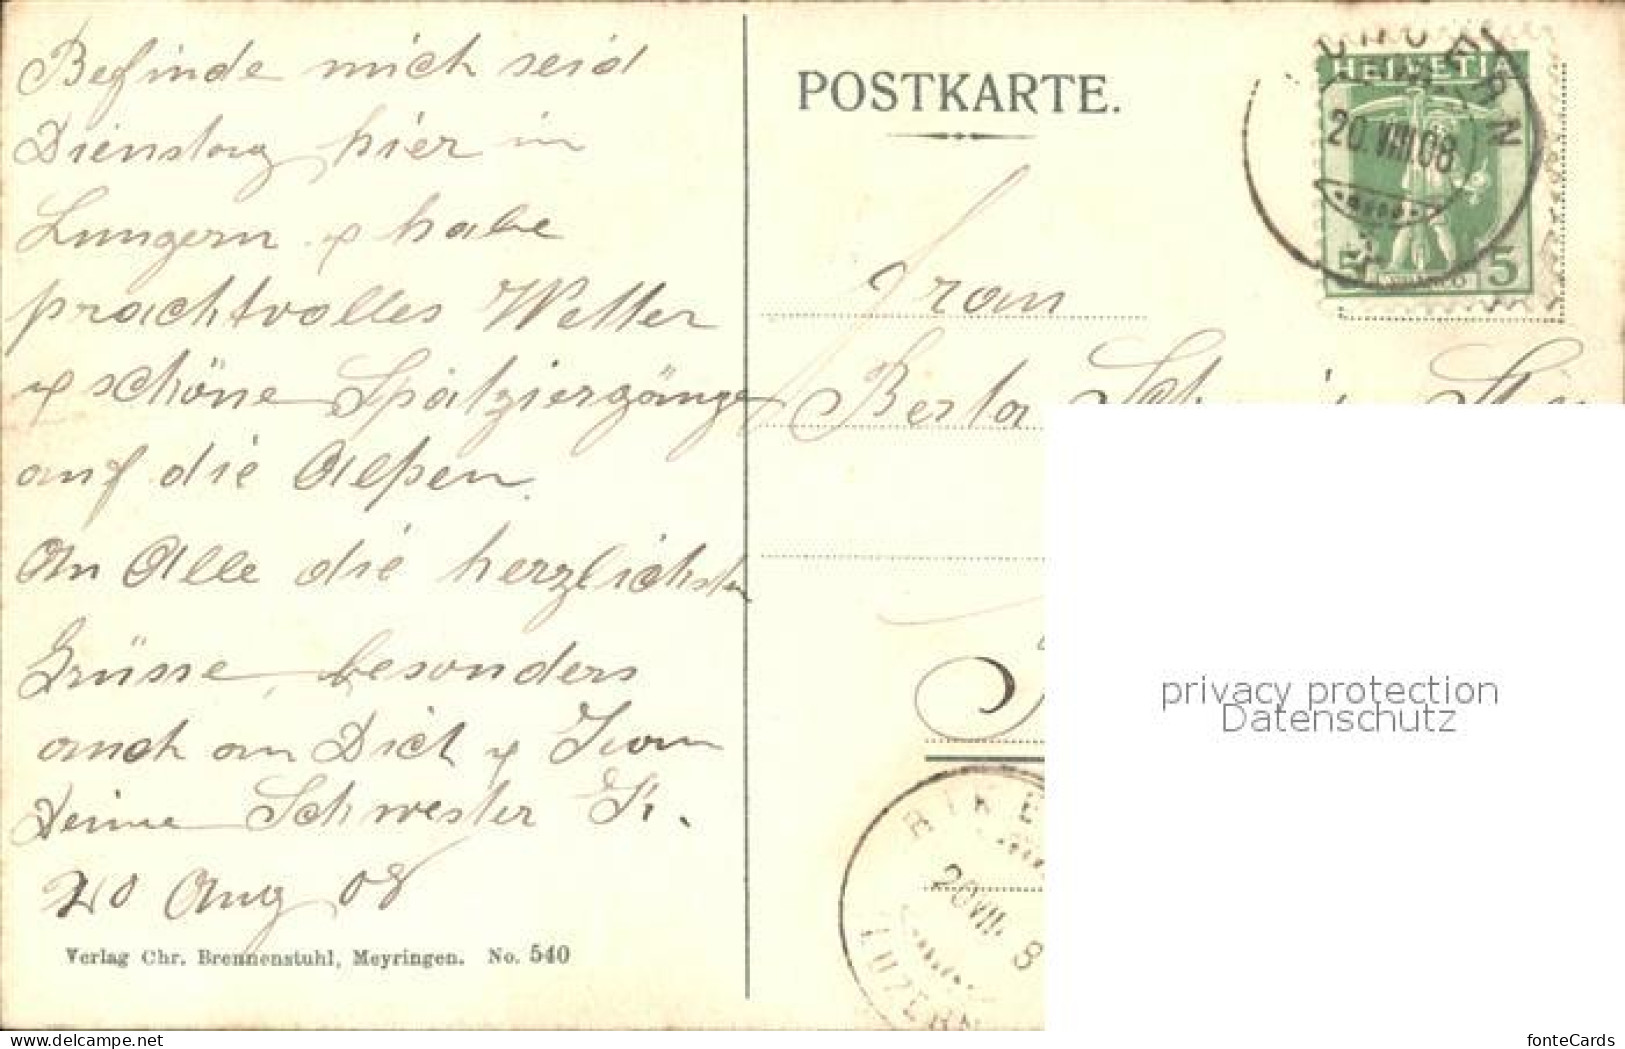 Befinde mich seid
Dienstag hier in
Lungern & habe
prachtvolles Wetter
& schöne Spatziergänge
auf die Alpen.
An Alle die herzlichsten
Grüsse, besonders
auch an Dich &
Deine Schwester
20 Aug 08
Verlag Chr. Brennenstuhl, Meyringen. No. 540
POSTKARTE.
LUNGERN
20.VIII.08
HELVETIA
5 5
Frau
Berta
20 VIII 8
LUZERN
privacy protection
Datenschutz
delcampe.net
fonteCards